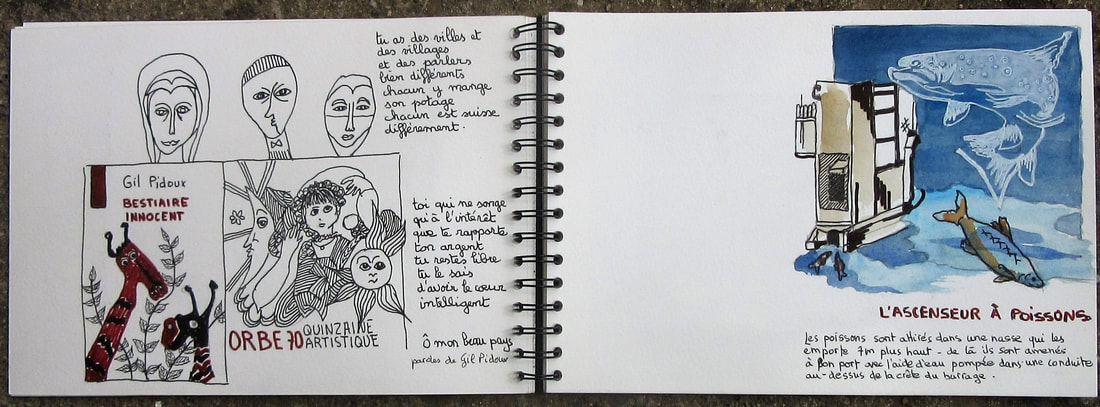 tu as des villes et
des villages
et des parlers
bien différents
chacun y mange
son potage
chacun est suisse
différemment.
Gil Pidoux
BESTIAIRE
INNOCENT
toi qui ne songe
qu'à l'intérêt
que te rapporte
ton argent
tu restes libre
tu le sais
d'avoir le cœur
intelligent
ORBE 70 QUINZAINE
ARTISTIQUE
ô mon beau pays
paroles de Gil Pidoux
L'ASCENSEUR À POISSONS
Les poissons sont attirés dans une nasse qui les
emporte 7m plus haut - de là ils sont amenés
à bon port avec l'aide d'eau pompée dans une conduite
au-dessus de la crête du barrage.